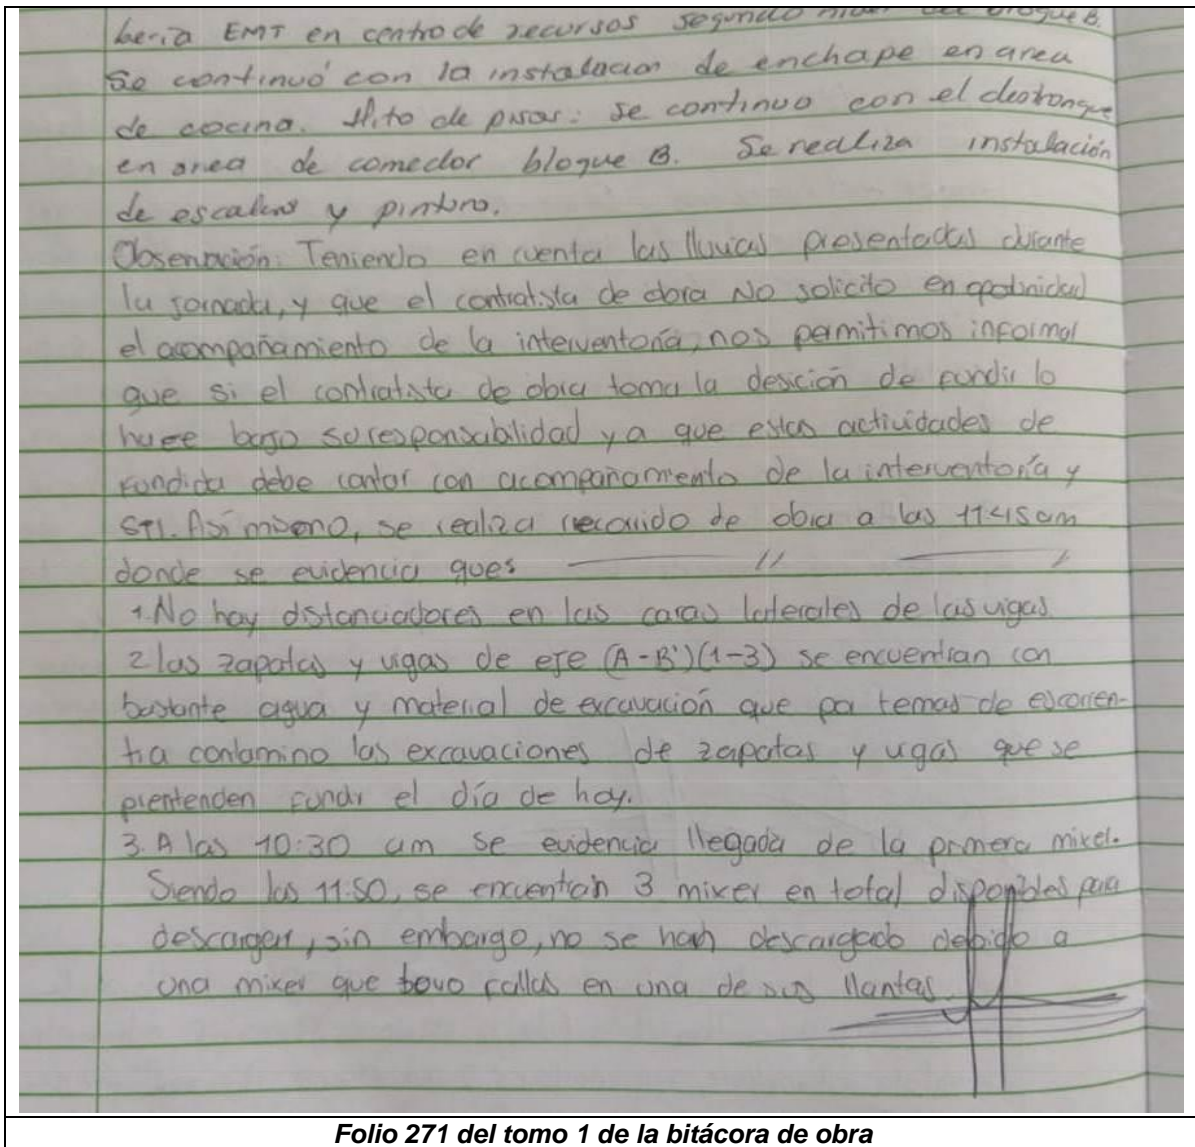 beria EMT en centro de recursos segundo nivel del bloque B.
Se continuó con la instalacion de enchape en area
de cocina. Hito de pisos: se continuo con el destronque
en area de comedor bloque B. Se realiza instalación
de escalera y pintura.
Observación: Teniendo en cuenta las lluvias presentadas durante
la jornada, y que el contratista de obra No solicito en oportunidad
el acompañamiento de la interventoría, nos permitimos informar
que si el contratista de obra toma la desición de fundir lo
hace bajo su responsabilidad ya que estas actividades de
fundida debe contar con acompañamiento de la interventoría y
Así mismo, se realiza recorrido de obra a las 11:45am
donde se evidencia que:
1. No hay distanciadores en las caras laterales de las vigas
2 las zapatas y vigas de eje (A-B')(1-3) se encuentran con
bastante agua y material de excavación que por temas de escorren-
tia contamino las excavaciones de zapatas y vigas que se
prentenden fundir el día de hoy.
3. A las 10:30 am se evidencia llegada de la primera mixer.
Siendo las 11:50, se encuentran 3 mixer en total disponibles para
descargar, sin embargo, no se han descargado debido a
una mixer que tuvo fallas en una de sus llantas.
Folio 271 del tomo 1 de la bitácora de obra